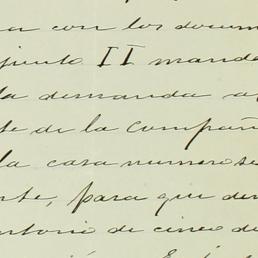 a con los docum
juicio II manda
la demanda a
te de la Compañ
la casa numero se
rte, para que den
ntorio de cinco de